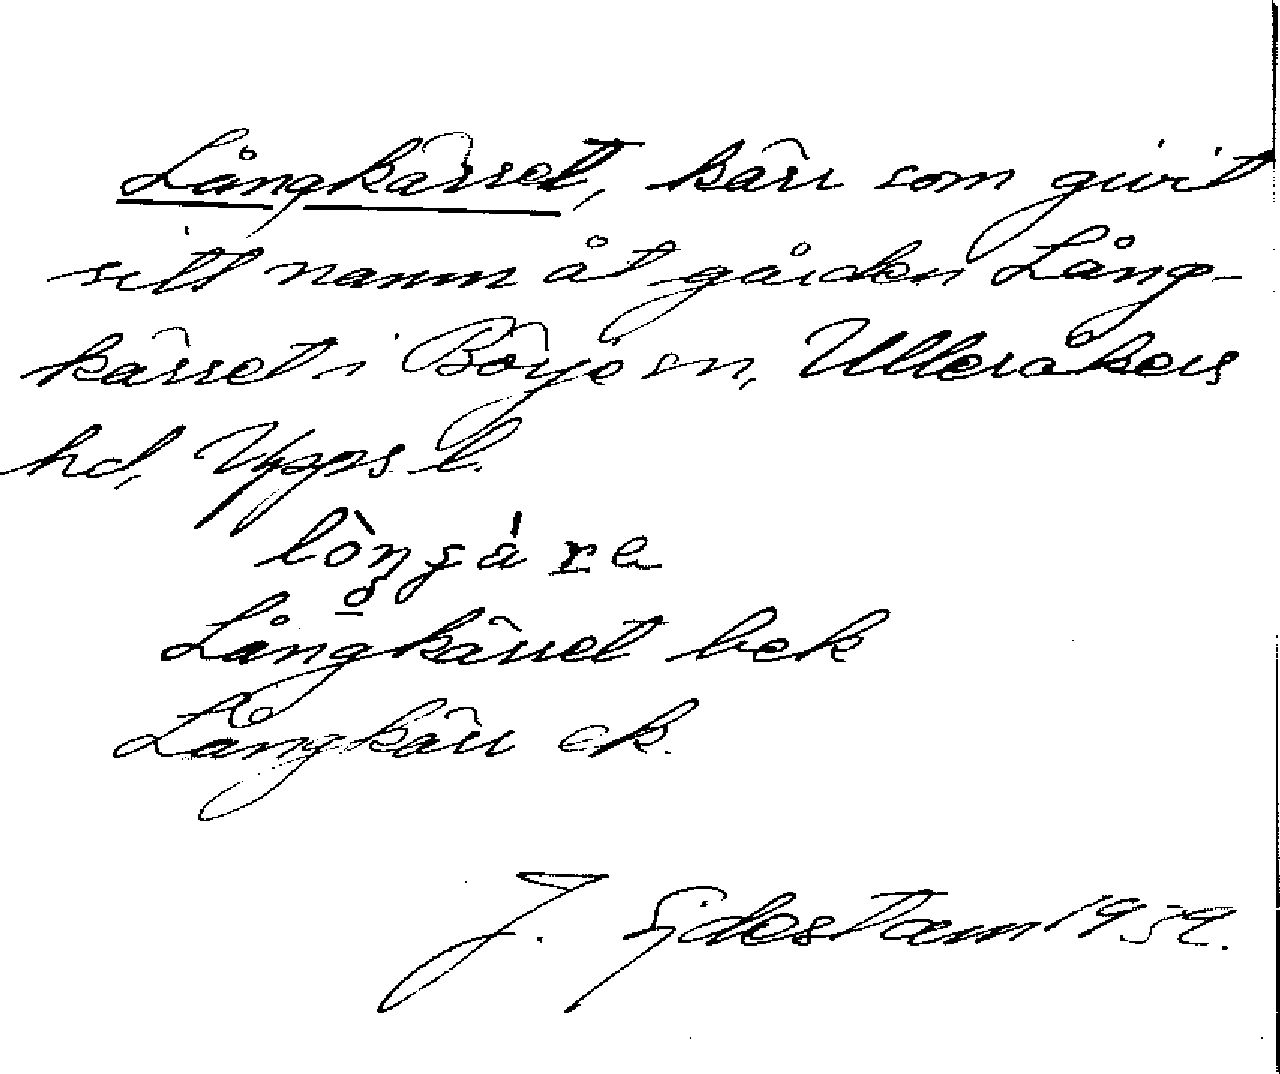 Långkärret, kärr som givit
sitt namn åt gården Lång-
kärret i Börje sn, Ulleråkers
hd, Upps. l.
Långkärret bek
Långkärr ek.
J. Sjdestam